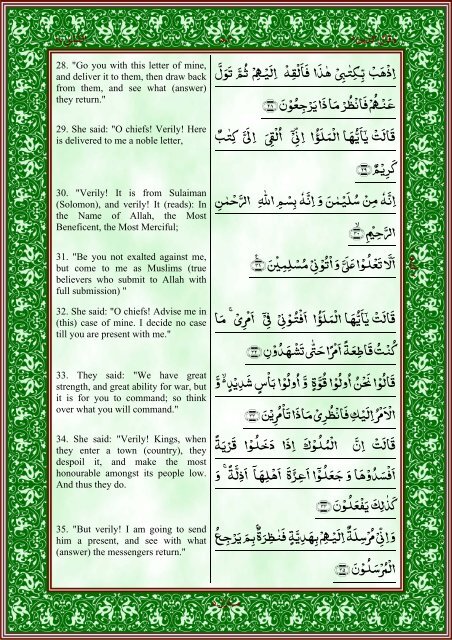 28. "Go you with this letter of mine,
and deliver it to them, then draw back
from them, and see what (answer)
they return."
اِذْهَبْ بِّكِتٰبِيْ هٰذَا فَاَلْقِهْ اِلَيْهِمْ ثُمَّ تَوَلَّ
عَنْهُمْ فَانْظُرْ مَاذَا يَرْجِعُوْنَ ﴿۲۸﴾
29. She said: "O chiefs! Verily! Here
is delivered to me a noble letter,
قَالَتْ يٰٓاَيُّهَا الْمَلَؤُا اِنِّيْٓ اُلْقِيَ اِلَيَّ كِتٰبٌ
كَرِيْمٌ ﴿۲۹﴾
30. "Verily! It is from Sulaiman
(Solomon), and verily! It (reads): In
the Name of Allah, the Most
Beneficent, the Most Merciful;
اِنَّهٗ مِنْ سُلَيْمٰنَ وَ اِنَّهٗ بِسْمِ اللّٰهِ الرَّحْمٰنِ
الرَّحِيْمِ ﴿۳۰﴾
31. "Be you not exalted against me,
but come to me as Muslims (true
believers who submit to Allah with
full submission) "
اَلَّا تَعْلُوْا عَلَيَّ وَ اْتُوْنِيْ مُسْلِمِيْنَ ﴿۳۱﴾
32. She said: "O chiefs! Advise me in
(this) case of mine. I decide no case
till you are present with me."
قَالَتْ يٰٓاَيُّهَا الْمَلَؤُا اَفْتُوْنِيْ فِيْٓ اَمْرِيْ ۚ مَا
كُنْتُ قَاطِعَةً اَمْرًا حَتّٰى تَشْهَدُوْنِ ﴿۳۲﴾
33. They said: "We have great
strength, and great ability for war, but
it is for you to command; so think
over what you will command."
قَالُوْا نَحْنُ اُولُوْا قُوَّةٍ وَّ اُولُوْا بَاْسٍ شَدِيْدٍ ۙ وَّ
الْاَمْرُ اِلَيْكِ فَانْظُرِيْ مَاذَا تَاْمُرِيْنَ ﴿۳۳﴾
34. She said: "Verily! Kings, when
they enter a town (country), they
despoil it, and make the most
honourable amongst its people low.
And thus they do.
قَالَتْ اِنَّ الْمُلُوْكَ اِذَا دَخَلُوْا قَرْيَةً
اَفْسَدُوْهَا وَ جَعَلُوْٓا اَعِزَّةَ اَهْلِهَآ اَذِلَّةً ۚ وَ
كَذٰلِكَ يَفْعَلُوْنَ ﴿۳۴﴾
35. "But verily! I am going to send
him a present, and see with what
(answer) the messengers return."
وَ اِنِّيْ مُرْسِلَةٌ اِلَيْهِمْ بِهَدِيَّةٍ فَنٰظِرَةٌۢ بِمَ يَرْجِعُ
الْمُرْسَلُوْنَ ﴿۳۵﴾